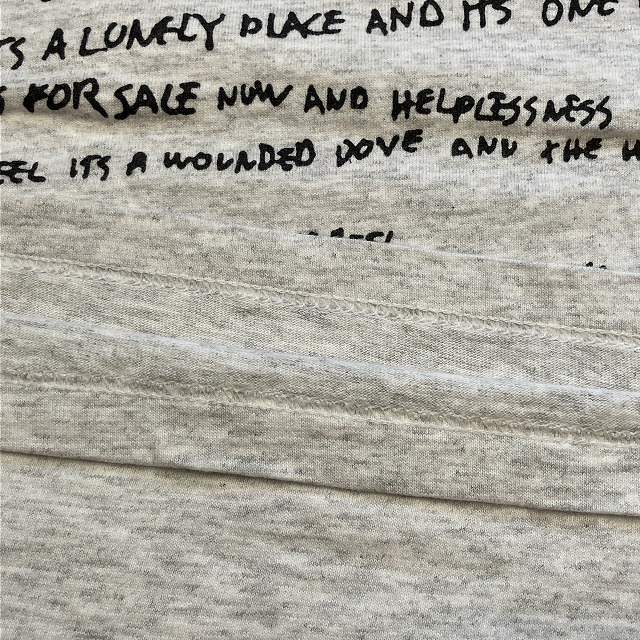 A LONELY PLACE AND ITS ONE
FOR SALE NOW AND HELPLESSNESS
ITS A WOUNDED DOVE AND THE